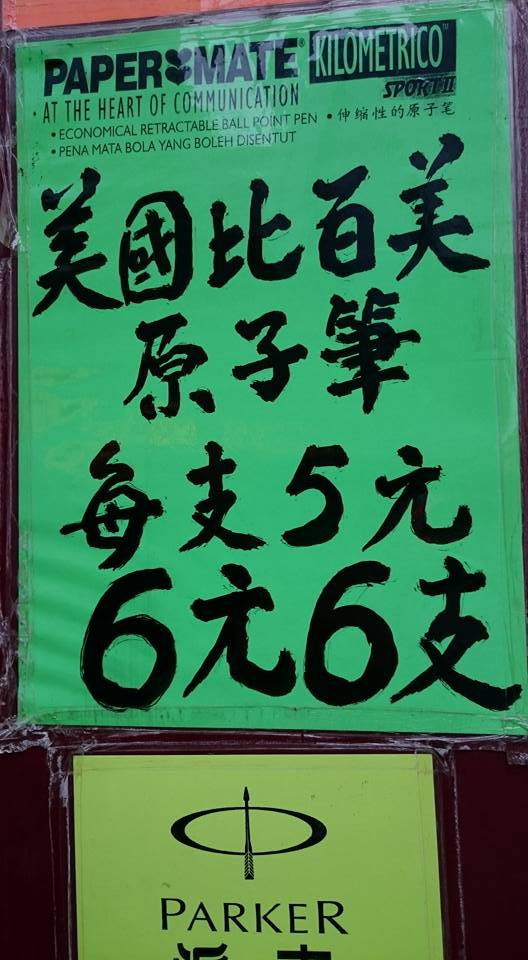 PAPER MATE® KILOMETRICO™
SPORT II
AT THE HEART OF COMMUNICATION
• ECONOMICAL RETRACTABLE BALL POINT PEN • 伸缩性的原子笔
• PENA MATA BOLA YANG BOLEH DISENTUT
美國比百美
原子筆
每支5元
6元6支
PARKER